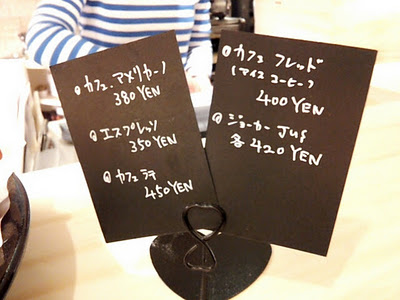 カフェ・アメリカーノ
380 YEN
エスプレッソ
350 YEN
カフェラテ
450 YEN
カフェ フレッド
(アイスコーヒー)
400 YEN
ジョーカー Juf
各 420 YEN